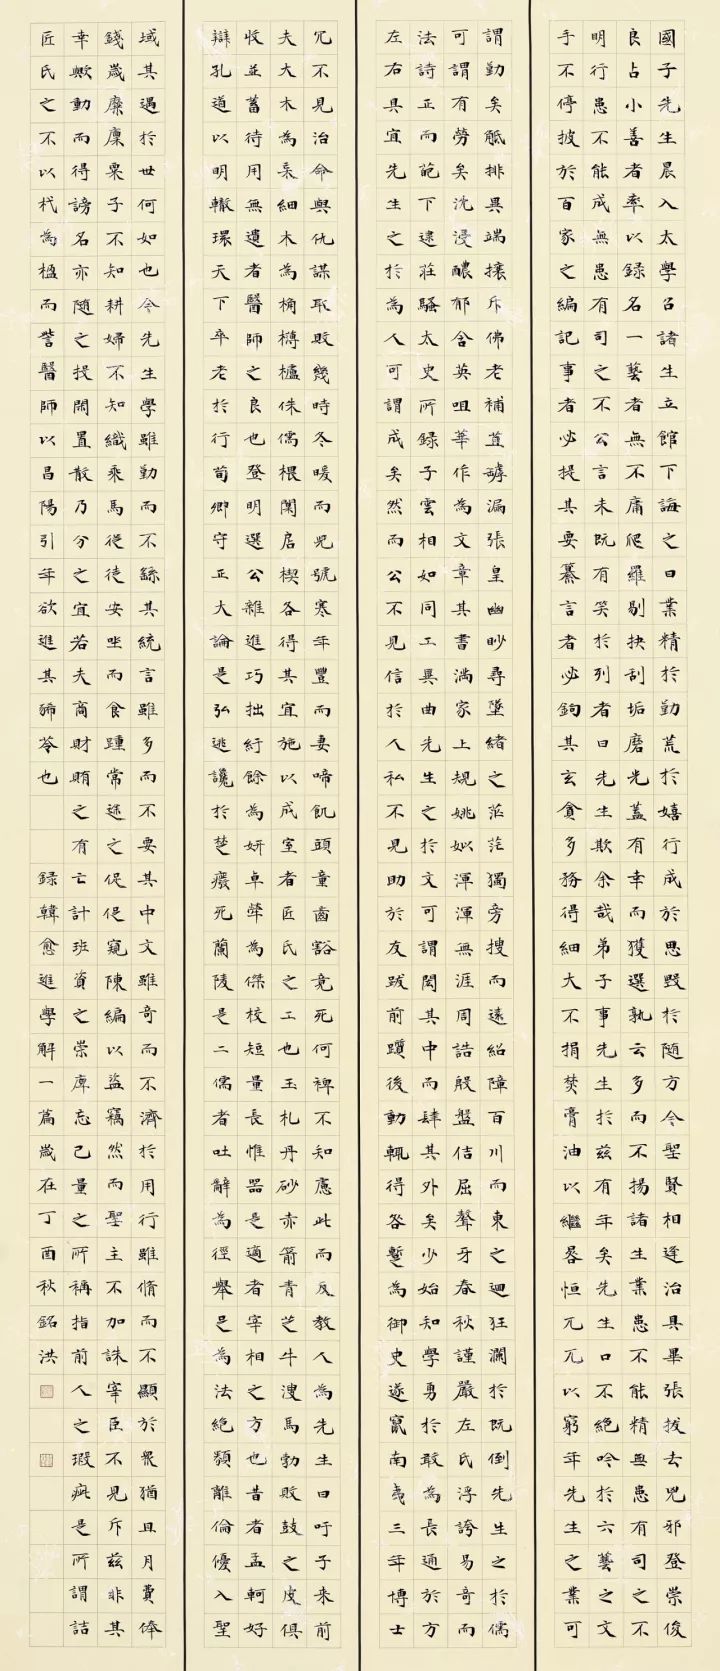 國子先生晨入太學召諸生立館下誨之曰業精於勤荒於嬉行成於思毀於隨方今聖賢相逢治具畢張拔去兇邪登崇俊
良占小善者率以録名一藝者無不庸爬羅剔抉刮垢磨光蓋有幸而獲選孰云多而不揚諸生業患不能精無患有司之不
明行患不能成無患有司之不公言未既有笑於列者曰先生欺余哉弟子事先生於茲有年矣先生口不絕吟於六藝之文
手不停披於百家之編記事者必提其要纂言者必鉤其玄貪多務得細大不捐焚膏油以繼晷恒兀兀以窮年先生之業可
謂勤矣觝排異端攘斥佛老補苴罅漏張皇幽眇尋墜緒之茫茫獨旁搜而遠紹障百川而東之迴狂瀾於既倒先生之於儒
可謂有勞矣沈浸醲郁含英咀華作為文章其書滿家上規姚姒渾渾無涯周誥殷盤佶屈聱牙春秋謹嚴左氏浮誇易奇而
法詩正而葩下逮莊騷太史所録子雲相如同工異曲先生之於文可謂閎其中而肆其外矣少始知學勇於敢為長通於方
左右具宜先生之於為人可謂成矣然而公不見信於人私不見助於友跋前躓後動輒得咎暫為御史遂竄南夷三年博士
冗不見治命與仇謀取敗幾時冬暖而兒號寒年豐而妻啼飢頭童齒豁竟死何裨不知慮此而反教人為先生曰吁子來前
夫大木為杗細木為桷欂櫨侏儒椳闑扂楔各得其宜施以成室者匠氏之工也玉札丹砂赤箭青芝牛溲馬勃敗鼓之皮俱
收並蓄待用無遺者醫師之良也登明選公雜進巧拙紆餘為妍卓犖為傑校短量長惟器是適者宰相之方也昔者孟軻好
辯孔道以明轍環天下卒老於行荀卿守正大論是弘逃讒於楚廢死蘭陵是二儒者吐辭為經舉足為法絕類離倫優入聖
域其遇於世何如也今先生學雖勤而不繇其統言雖多而不要其中文雖奇而不濟於用行雖脩而不顯於眾猶且月費俸
錢歲靡廩粟子不知耕婦不知織乘馬從徒安坐而食踵常途之促促窺陳編以盜竊然而聖主不加誅宰臣不見斥茲非其
幸歟動而得謗名亦隨之投閒置散乃分之宜若夫商財賄之有亡計班資之崇庳忘己量之所稱指前人之瑕疵是所謂詰
匠氏之不以杙為楹而訾醫師以昌陽引年欲進其豨苓也 録韓愈進學解一篇歲在丁酉秋銘洪